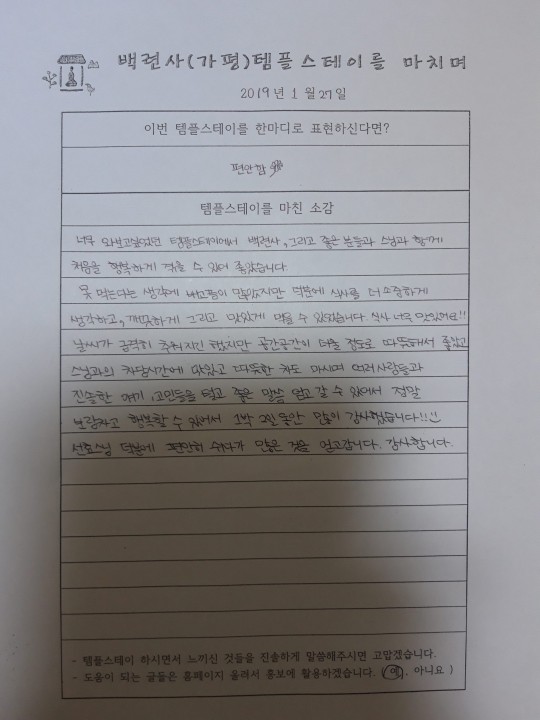 백련사(가평)템플스테이를 마치며
2019년 1월 27일
이번 템플스테이를 한마디로 표현하신다면?
편안함
템플스테이를 마친 소감
너무 와보고싶었던 템플스테이에서 백련사, 그리고 좋은 분들과 스님과 함께
처음을 행복하게 겪을 수 있어 좋았습니다.
못 먹는다는 생각에 배고픔이 많았지만 덕분에 식사를 더 소중하게
생각하고, 깨끗하게 그리고 맛있게 먹을 수 있었습니다. 식사 너무 맛있어요!!
날씨가 급격히 추워지긴 했지만 공간공간이 더울 정도로 따뜻해서 좋았고
스님과의 차담시간에 맛있고 따뜻한 차도 마시며 여러사람들과
진솔한 얘기, 고민들을 털고 좋은 말씀 얻고 갈 수 있어서 정말
보람차고 행복할 수 있어서 1박 2일동안 많이 감사했습니다!!!
선효스님 덕분에 편안히 쉬다가 많은 것을 얻고갑니다. 감사합니다.
- 템플스테이 하시면서 느끼신 것들을 진솔하게 말씀해주시면 고맙겠습니다.
- 도움이 되는 글들은 홈페이지 올려서 홍보에 활용하겠습니다. ( 예, 아니요 )